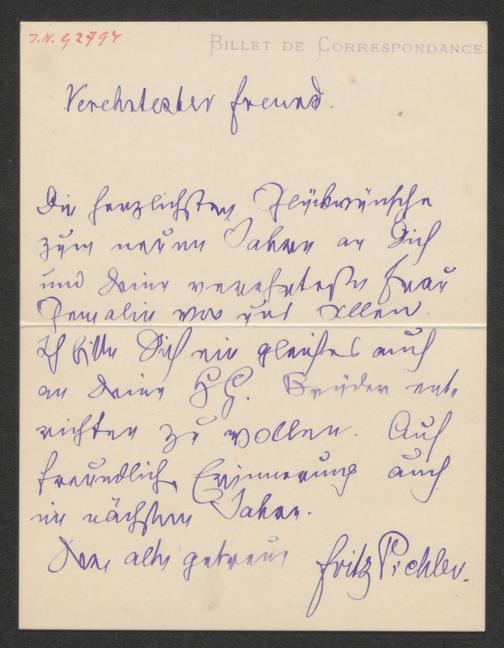 J.N. 92794
BILLET DE CORRESPONDANCE.
Verehrtester Freund.
Die herzlichsten Glückwünsche
zum neuen Jahre an Dich
und Deine verehrteste Frau
Gemalin von uns allen.
Ich bitte Dich ein gleiches auch
an Deine HH. Brüder ent-
richten zu wollen. Auf
freundlich Erinnerung auch
im nächsten Jahre.
Dein alter getreuer Fritz Pichler.